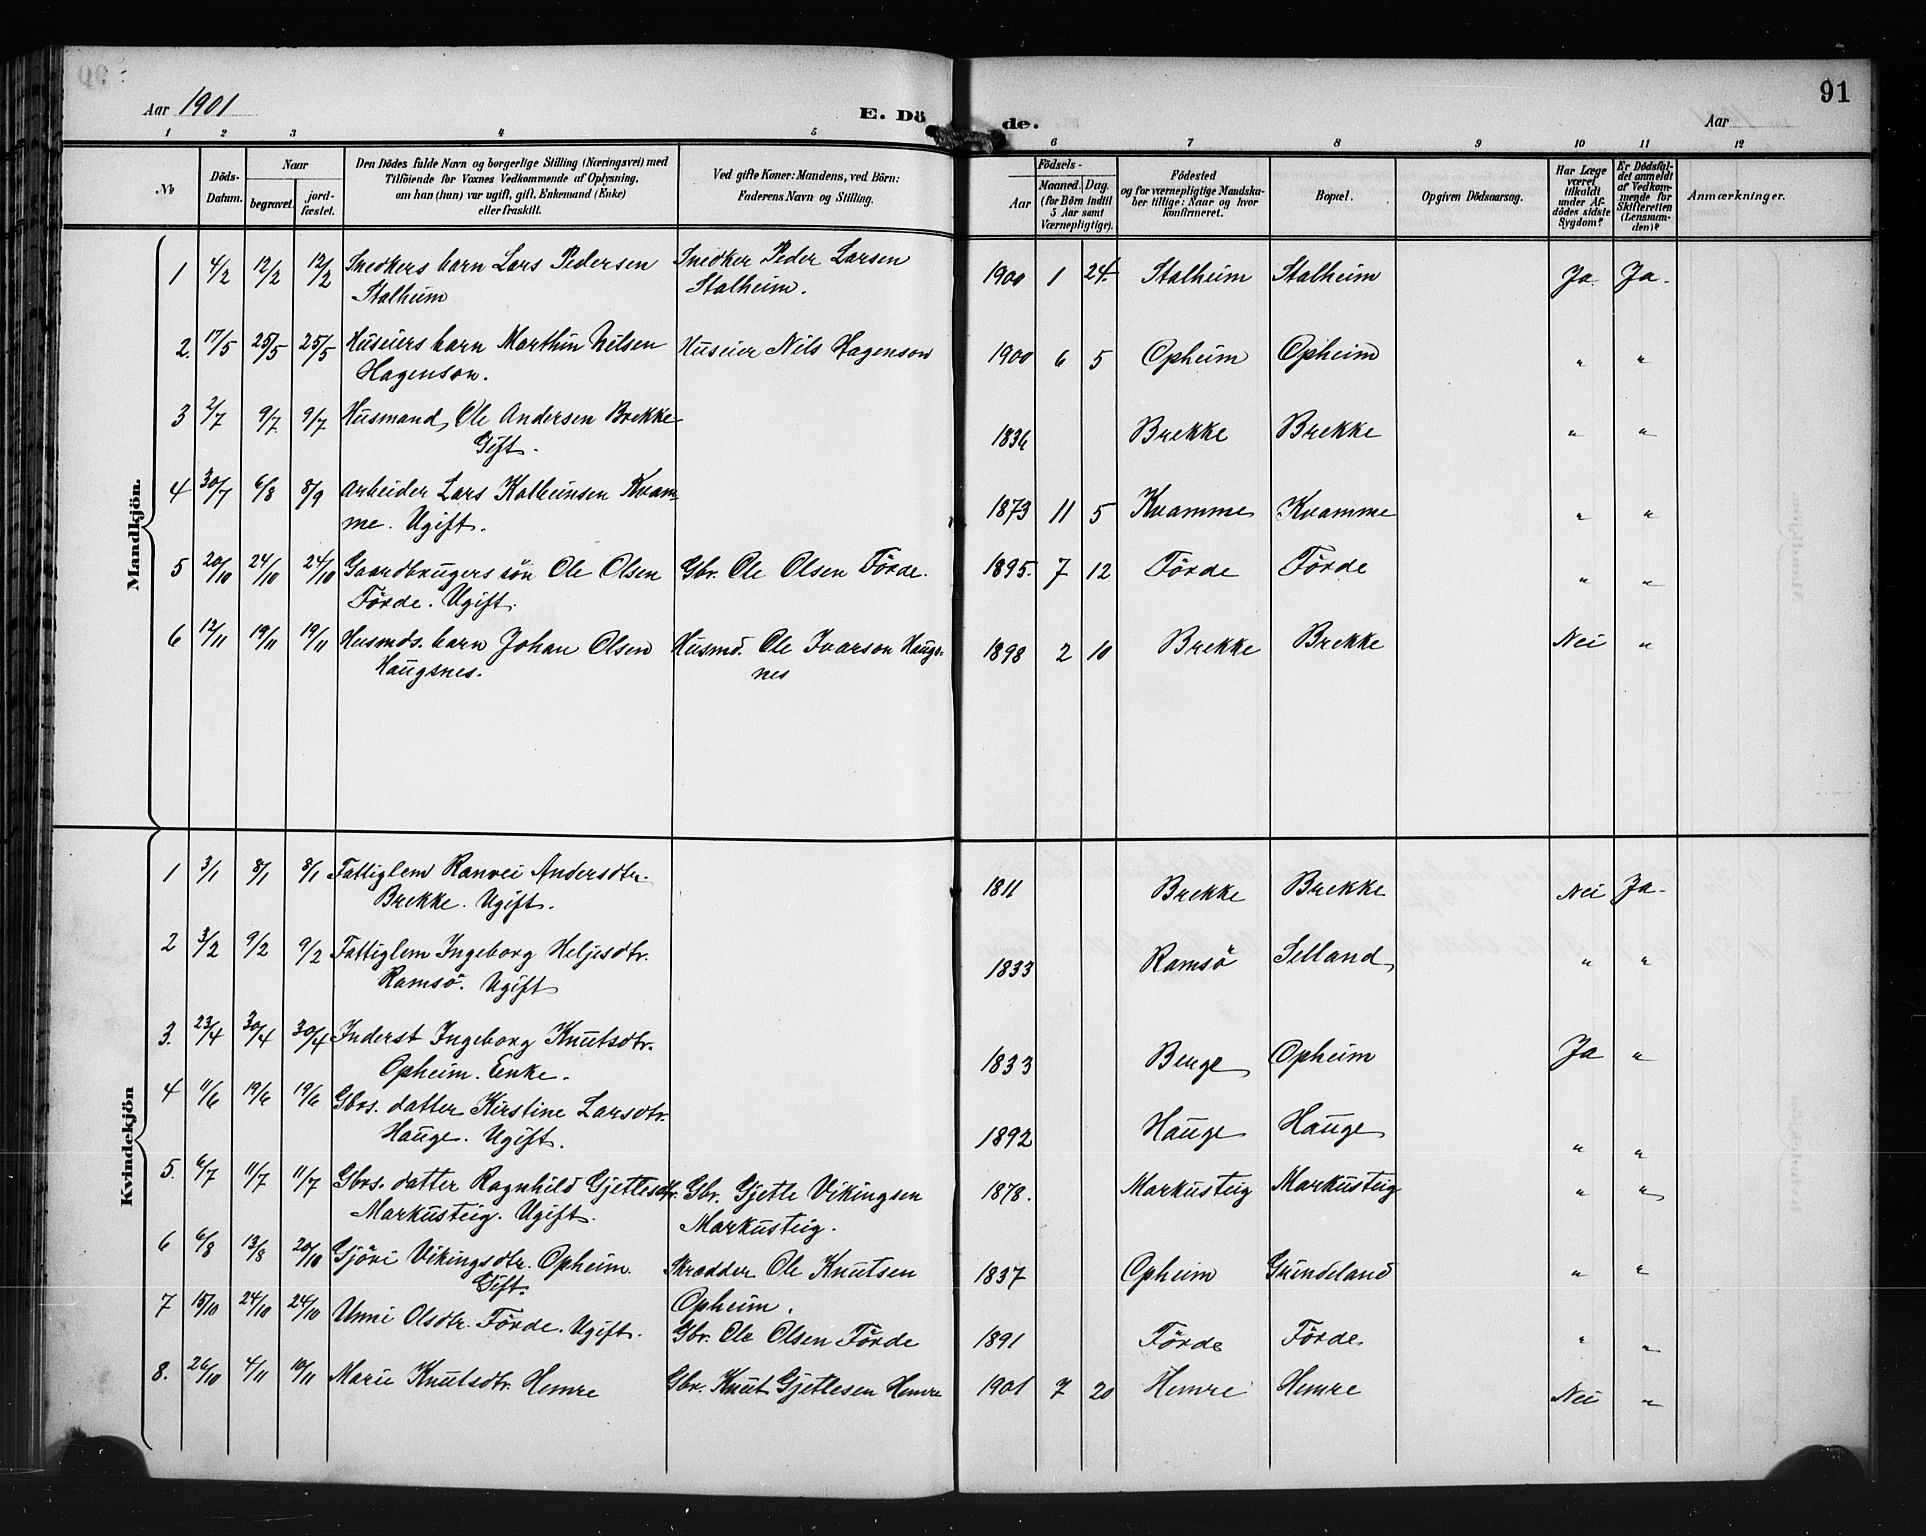 91
Aar 1901
E. Dö de.
Aar
1 2 3 4 5 6 7 8 9 10 11 12
No
Döds-Datum.
Naar
begravet.
jord-fæstet.
Den Dödes fulde Navn og borgerlige Stilling (Næringsvei) med
Tilföiende for Voxnes Vedkommende af Oplysning,
om han (hun) var ugift, gift, Enkemand (Enke)
eller fraskilt.
Ved gifte Koner: Mandens, ved Börn:
Faderens Navn og Stilling.
Födsels-
Aar
Maaned. Dag.
(for Börn indtil
5 Aar samt
Værnepligtige).
Födested
og for værnepligtige Mandska-
ber tillige: Naar og hvor
konfirmeret.
Bopæl.
Opgiven Dödsaarsag.
Har Læge
været
tilkaldt
under Af-
dödes sidste
Sygdom?
Er Dödsfal-
det anmeldt
af Vedkom-
mende for
Skifteretten
(Lensman-
den)?
Anmærkninger.
Mandkjön.
1 4/2 12/2 12/2 Snedkers barn Lars Pedersen Snedker Peder Larsen 1900 1 24 Stalheim Stalheim Ja Ja.
Stalheim Stalheim.
2. 17/5 25/5 25/5 Huseiers barn Marthin Nilsen Huseier Nils Hagenson 1900 6 5 Opheim Opheim " "
Hagenson.
3 2/7 9/7 9/7 Husmand Ole Andersen Brekke 1836 Brekke Brekke " "
Gift.
4 30/7 6/8 8/9 Arbeider Lars Kolbeinsen Kvam- 1873 11 5 Kvamme Kvamme " "
me. Ugift.
5 20/10 24/10 24/10 Gaardbrugers sön Ole Olsen Gbr. Ole Olsen Förde. 1895. 7 12 Förde Förde " "
Förde. Ugift.
6 12/11 19/11 19/11 Husmds. barn Johan Olsen Husmd. Ole Ivarson Haugs- 1898 2 10 Brekke Brekke Nei "
Haugsnes. nes
Kvindekjön
1 3/1 8/1 8/1 Fattiglem Ranvei Andersdtr. 1811 Brekke Brekke Nei Ja.
Brekke. Ugift.
2 3/2 9/2 9/2 Fattiglem Ingeborg Heljesdtr. 1833 Ramsö Selland " "
Ramsö. Ugift
3. 23/4 30/4 30/4 Inderst Ingeborg Knutsdtr. 1833 Berge Opheim Ja "
Opheim. Enke.
4 11/6 19/6 19/6 Gbrs. datter Kirstine Larsdtr. 1892 Hauge Hauge " "
Hauge. Ugift.
5. 6/7 11/7 11/7 Gbrs. datter Ragnhild Gjettlesdtr. Gbr. Gjette Vikingsen 1878. Markusteig Markusteig " "
Markusteig. Ugift. Markusteig.
6 6/8 13/8 20/10 Gjöri Vikingsdtr. Opheim. Skrædder Ole Knutsen 1837 Opheim Grindeland " "
Gift. Opheim.
7 15/10 24/10 24/10 Unni Olsdtr. Förde. Ugift. Gbr. Ole Olsen Förde 1891 Förde Förde " "
8. 26/10 4/11 10/11 Marie Knutsdtr. Hemre Gbr. Knut Gjetlesen Hemre 1901 7 20 Hemre Hemre Nei "